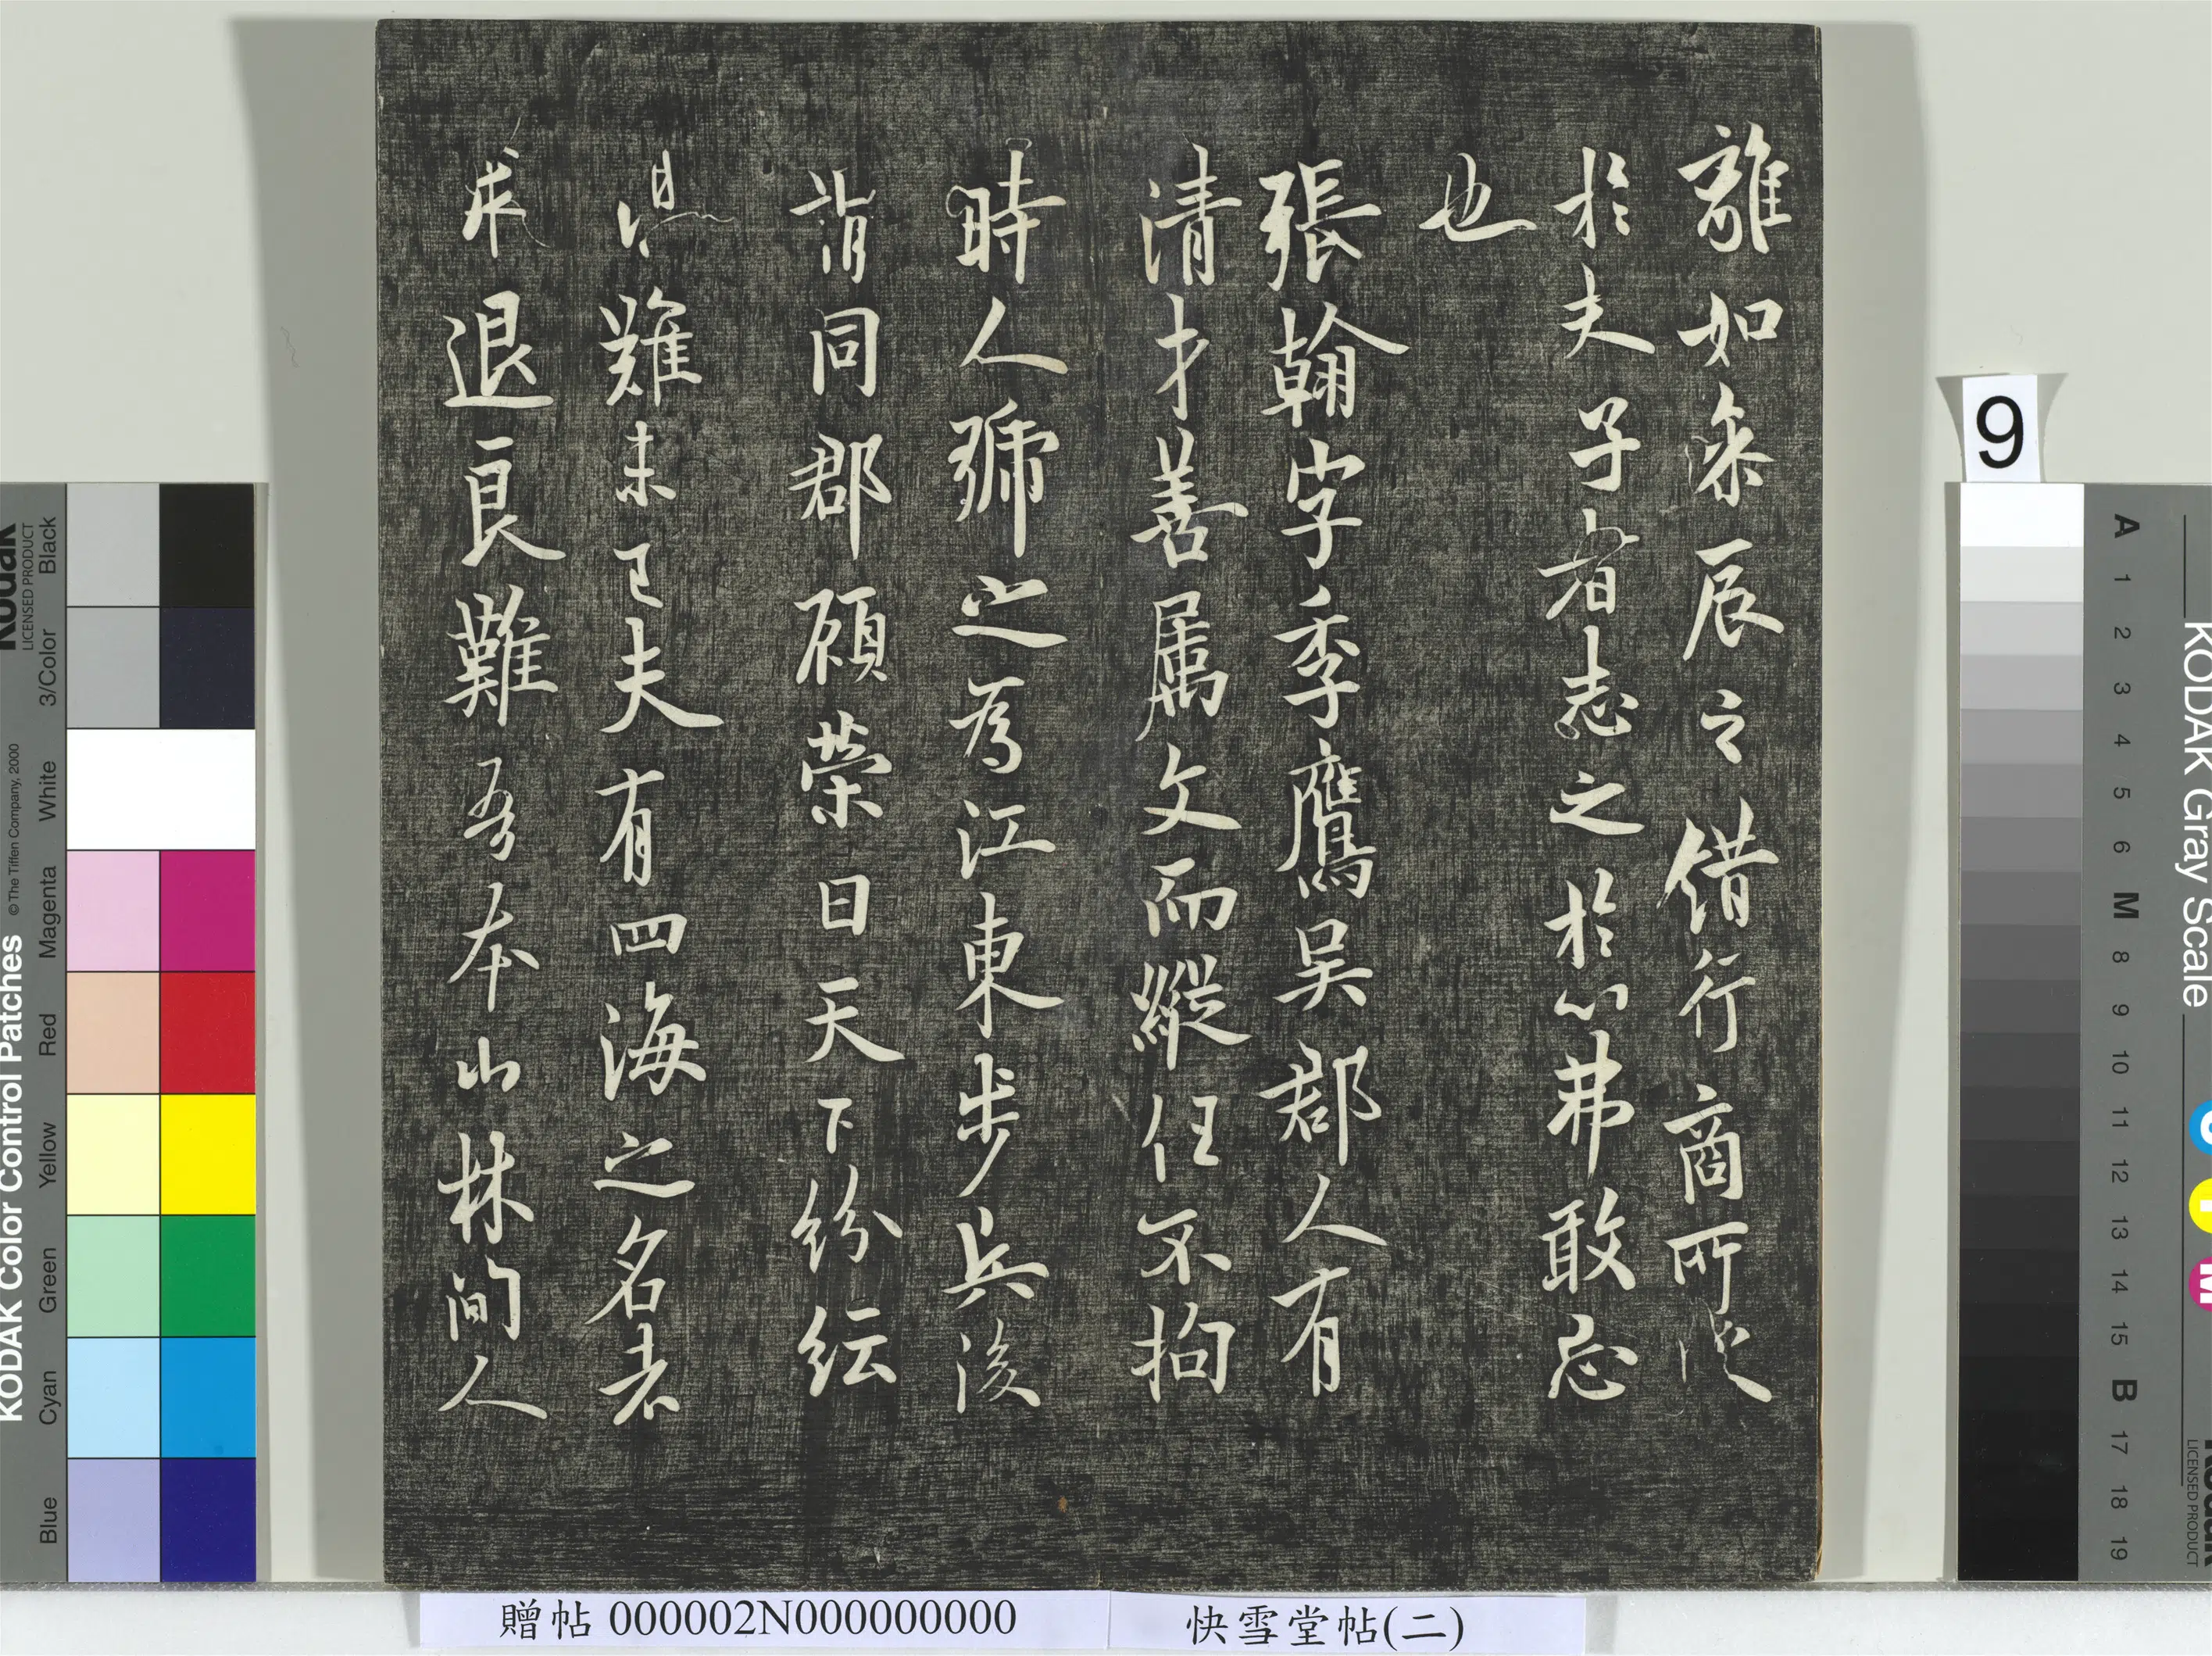 離如參辰之錯行商所從
於夫子者志之於心弗敢忘
也
張翰字季鷹吴郡人有
清才善属文而縱任不拘
時人號之為江東步兵後
謂同郡顾榮曰天下紛紜
難未已夫有四海之名者
求退良難吾本山林間人
9
贈帖 000002N000000000
快雪堂帖(二)
KODAK Color Control Patches
© The Tiffen Company, 2000
Kodak
LICENSED PRODUCT
Blue
Cyan
Green
Yellow
Red
Magenta
White
3/Color
Black
KODAK Gray Scale
A 1 2 3 4 5 6 M 8 9 10 11 12 13 14 15 B 17 18 19
LICENSED PRODUCT